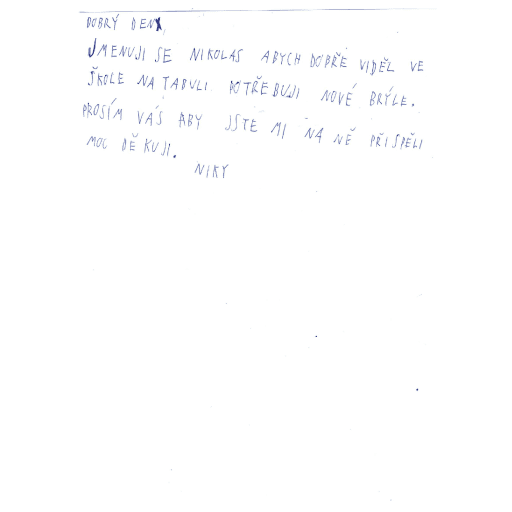 DOBRÝ DEN,
JMENUJI SE NIKOLAS ABYCH DOBŘE VIDĚL VE
ŠKOLE NA TABULI POTŘEBUJI NOVÉ BRÝLE.
PROSÍM VÁS ABY JSTE MI NA NĚ PŘISPĚLI
MOC DĚKUJI.
NIKY